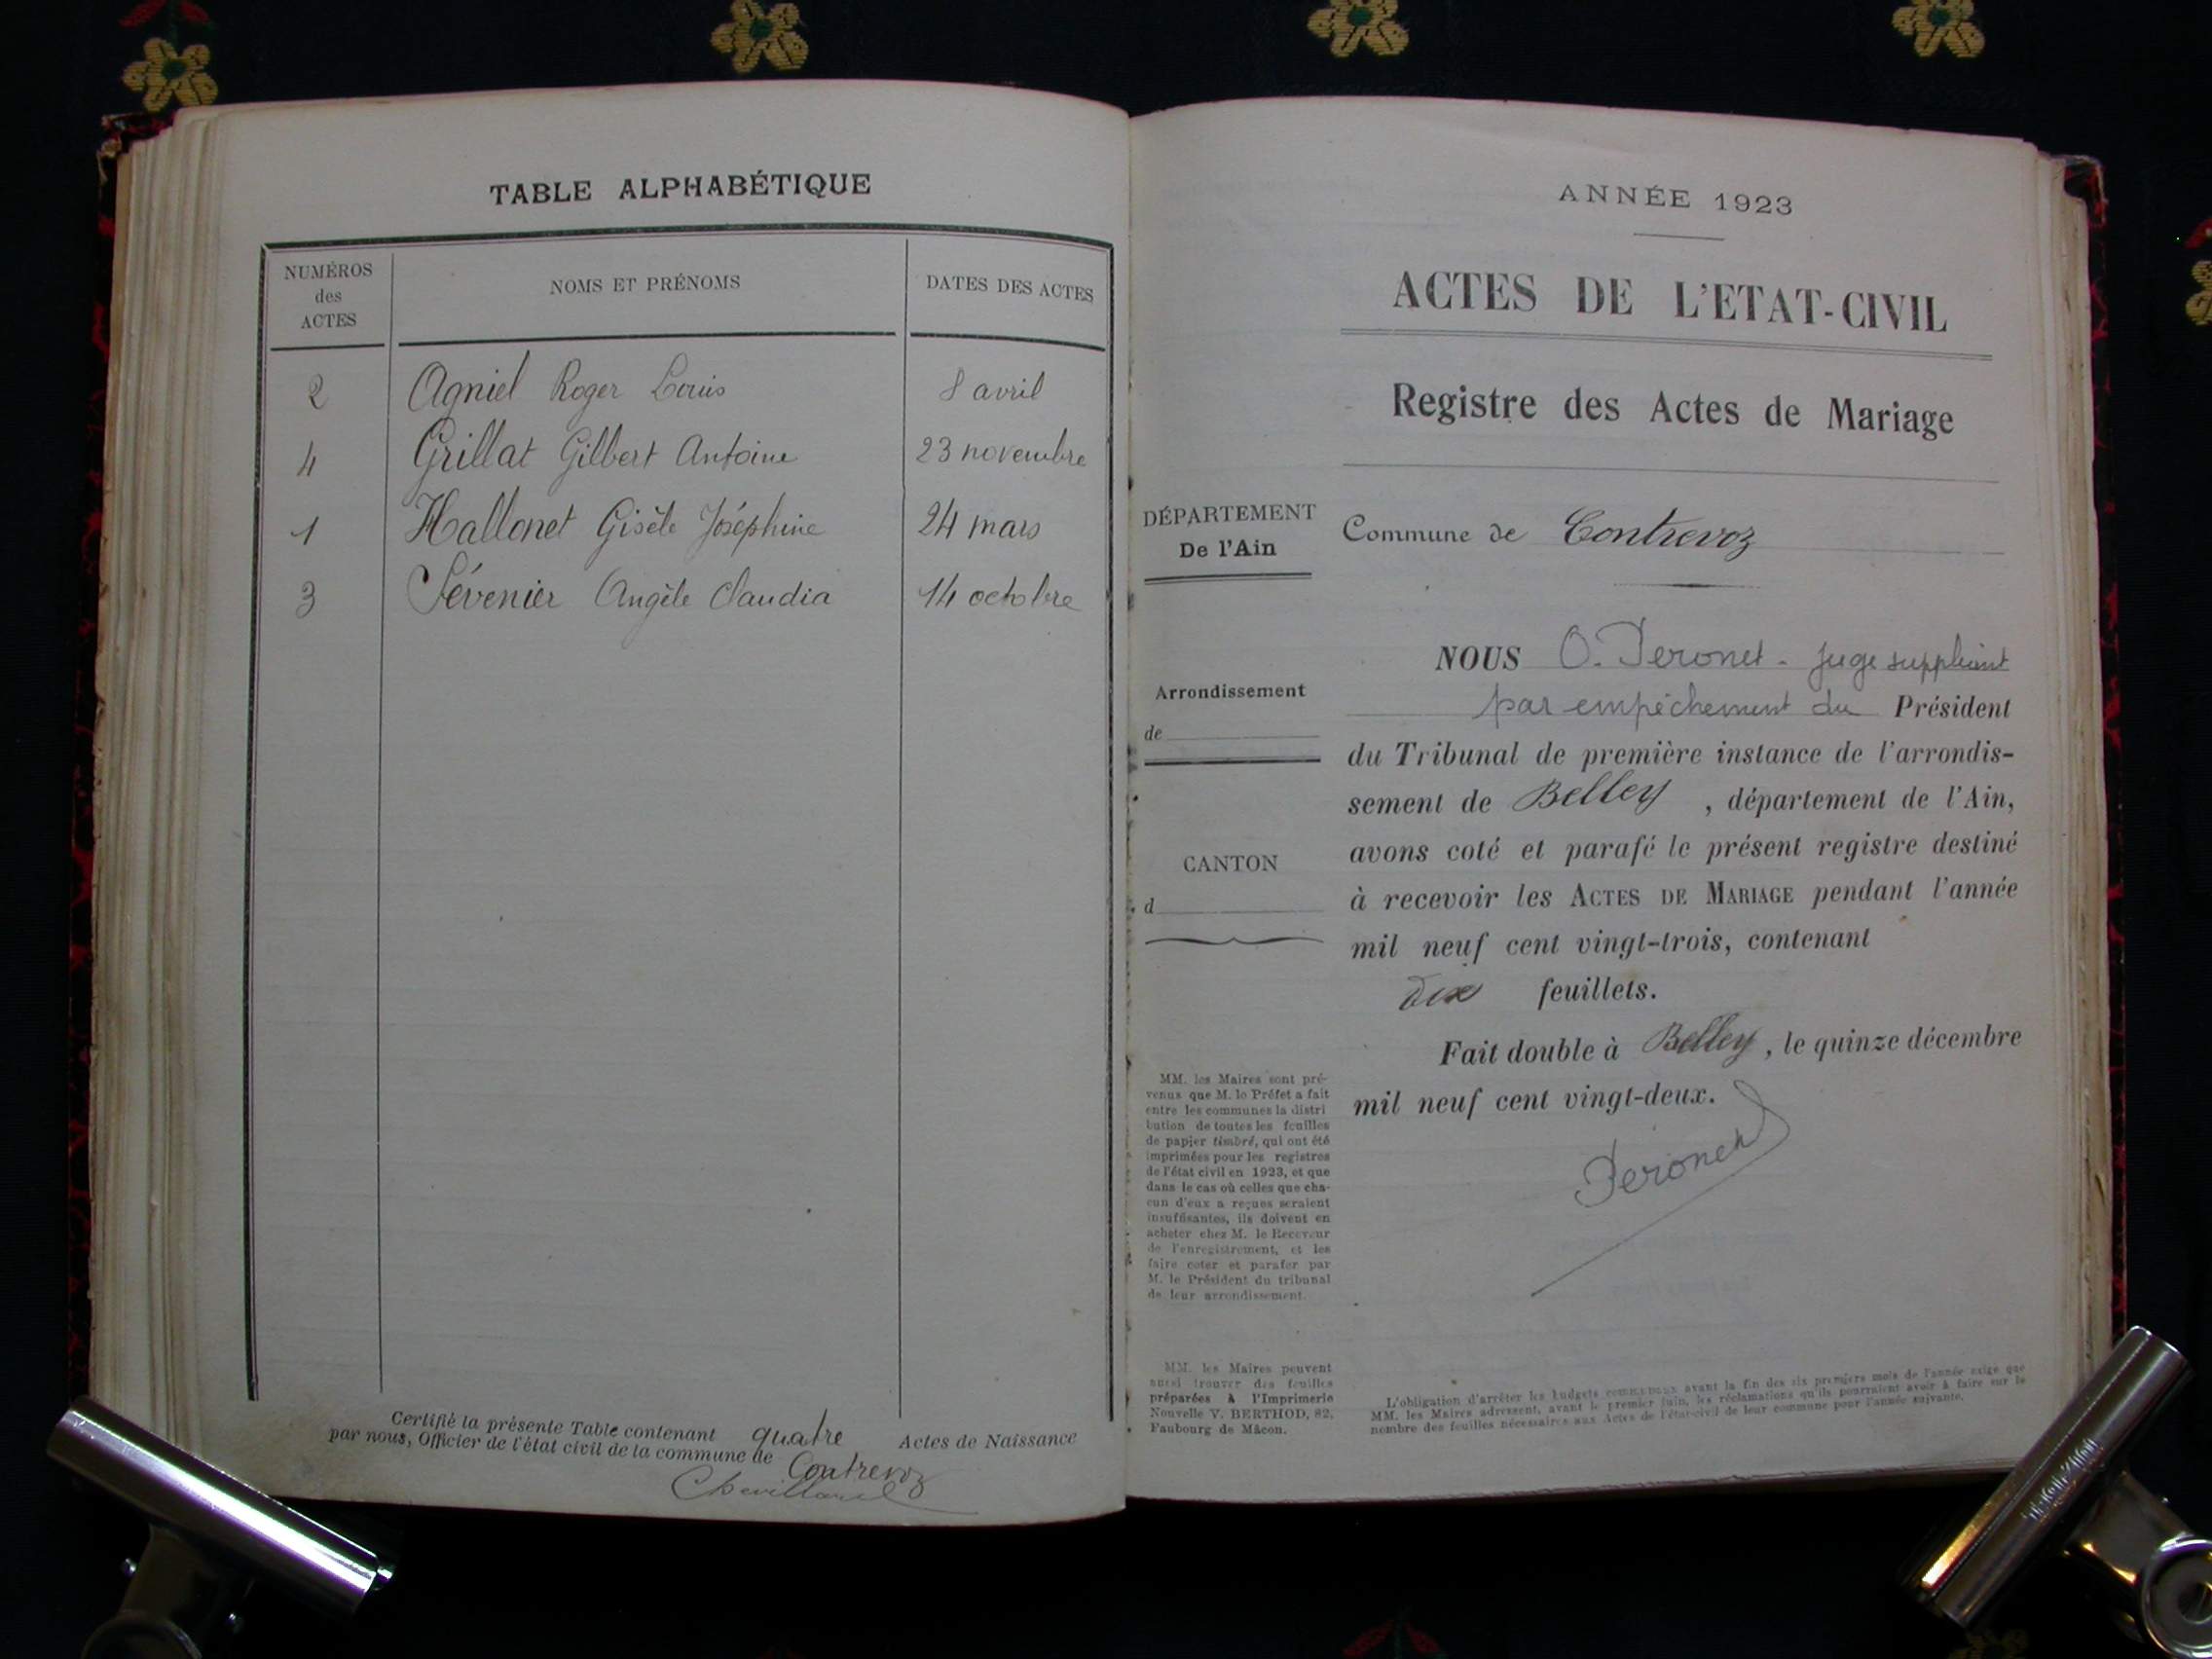 TABLE ALPHABÉTIQUE
NUMÉROS
des
ACTES
NOMS ET PRÉNOMS
DATES DES ACTES
2 Agniel Roger Louis 8 avril
4 Grillat Gilbert Antoine 23 novembre
1 Hallonet Gisèle Joséphine 24 mars
3 Sévenier Angèle Claudia 14 octobre
Certifié la présente Table contenant quatre Actes de Naissance
par nous, Officier de l'état civil de la commune de Contrevoz
Chevillard
ANNÉE 1923
ACTES DE L'ETAT-CIVIL
Registre des Actes de Mariage
DÉPARTEMENT
De l'Ain
Commune de Contrevoz
Arrondissement
de
CANTON
d
NOUS O. Peronet - juge suppléant
par empêchement du Président
du Tribunal de première instance de l'arrondis-
sement de Belley, département de l'Ain,
avons coté et parafé le présent registre destiné
à recevoir les ACTES DE MARIAGE pendant l'année
mil neuf cent vingt-trois, contenant
dix feuillets.
Fait double à Belley, le quinze décembre
mil neuf cent vingt-deux.
Peronet
MM. les Maires sont pré-
venus que M. le Préfet a fait
entre les communes la distri
bution de toutes les feuilles
de papier timbré, qui ont été
imprimées pour les registres
de l'état civil en 1923, et que
dans le cas où celles que cha-
cun d'eux a reçues seraient
insuffisantes, ils doivent en
acheter chez M. le Receveur
de l'enregistrement, et les
faire coter et parafer par
M. le Président du tribunal
de leur arrondissement.
MM. les Maires peuvent
aussi trouver des feuilles
préparées à l'Imprimerie
Nouvelle V. BERTHOD, 82,
Faubourg de Mâcon.
L'obligation d'arrêter les budgets communaux avant la fin des six premiers mois de l'année exige que
MM. les Maires adressent, avant le premier juin, les réclamations qu'ils pourraient avoir à faire sur le
nombre des feuilles nécessaires aux Actes de l'état-civil de leur commune pour l'année suivante.